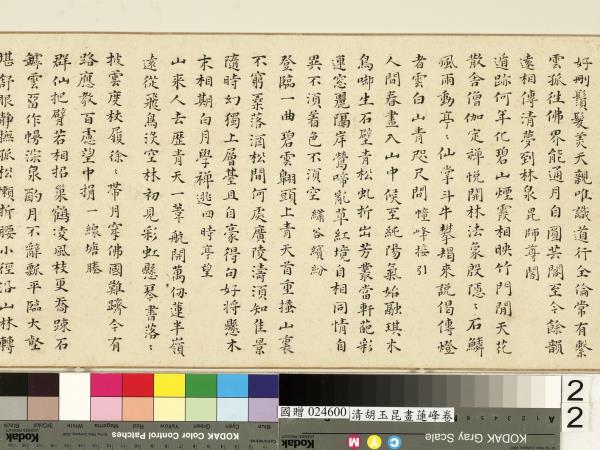 好刪鬚髮羙天親唯識道行全倫常有繫
雲孤往佛界能通月自圓芙閣至今餘韻
遠相傳清夢到林泉 毘師尊閣
遁跡何年化碧山煙霞相映竹門閒天花
散舍僧伽定禪悅開林法象殷隱〻石鱗
風雨動亭〻仙掌斗牛攀錫來說偈傳燈
者雲白山青咫尺間 幢峰接引
人間春晝入山中候至純陽氣始融琪木
鳥啣生石壁青松虬折出芳叢當軒葩彩
運窓麗隔岸鶯啼亂草紅境自相同情自
異不須着色不須空 繡谷繽紛
登臨一曲碧雲翺頭上青天首重搔山裏
不窮蓁落酒松間何處廣陵濤須知佳景
隨時幻獨上層基且自豪得句好將懸木
末相期白月學禪逃 四時亭望
山來人去歷青天一葦航開萬仭蓮半嶺
遠從飛鳥沒空林初見彩虹懸琴書落〻
披雲度杖履徐〻帶月穿佛國難躋今有
路應教百慮望中捐 一線塘勝
群仙把臂若相招巢鶴凌風枝更喬踈石
罅雲留作幔淙泉酌月不辭瓢平臨大壑
堪舒眼靜撫孤松懶折腰小徑沿山林轉
國贈 024600 清胡玉昆畫蓮峰卷
22
Kodak
KODAK Color Control Patches
Blue
Cyan
Green
Yellow
Red
Magenta
White
3/Color
Black
KODAK Gray Scale
C
Y
M
Kodak
A